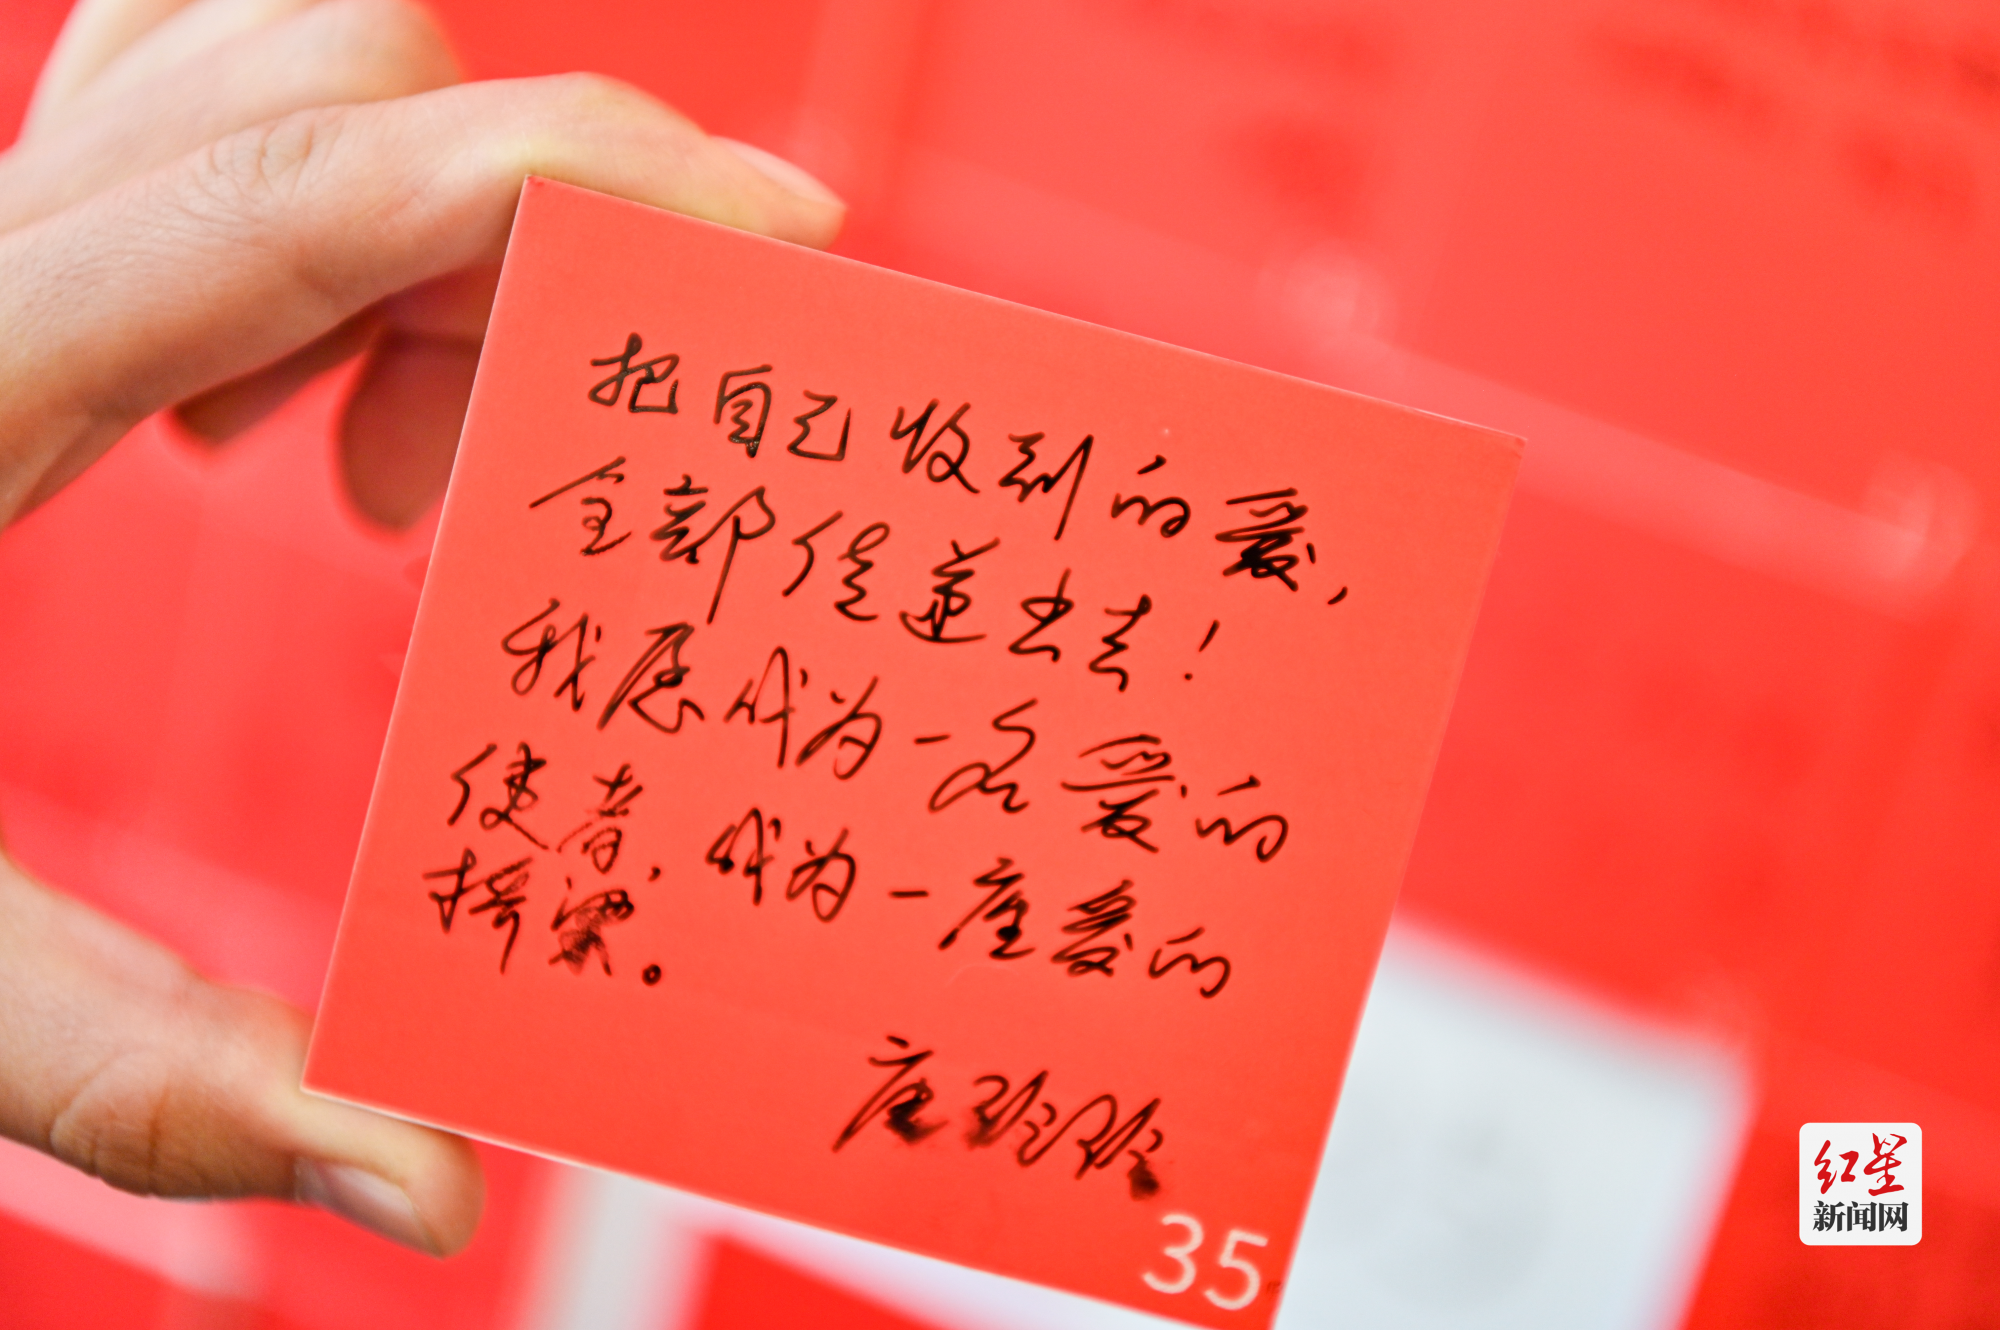 把自己收到的爱，
全部传递出去！
我愿成为一名爱的
使者，成为一座爱的
桥梁。
唐玲玲
35
红星
新闻网